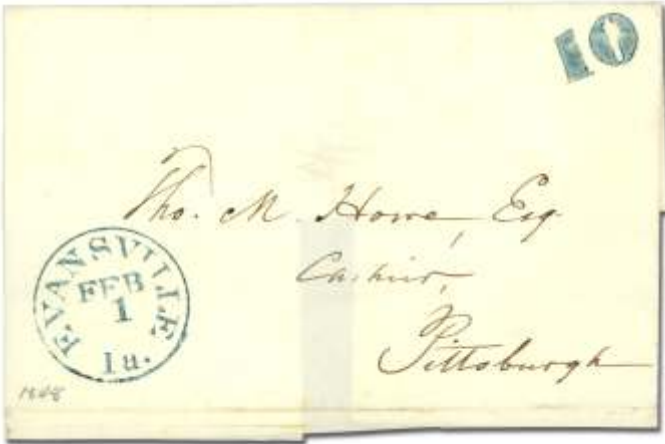 10
Tho. M. Howe, Esq.
Cashier,
Pittsburgh
EVANSVILLE
FEB
1
Ia.
1848